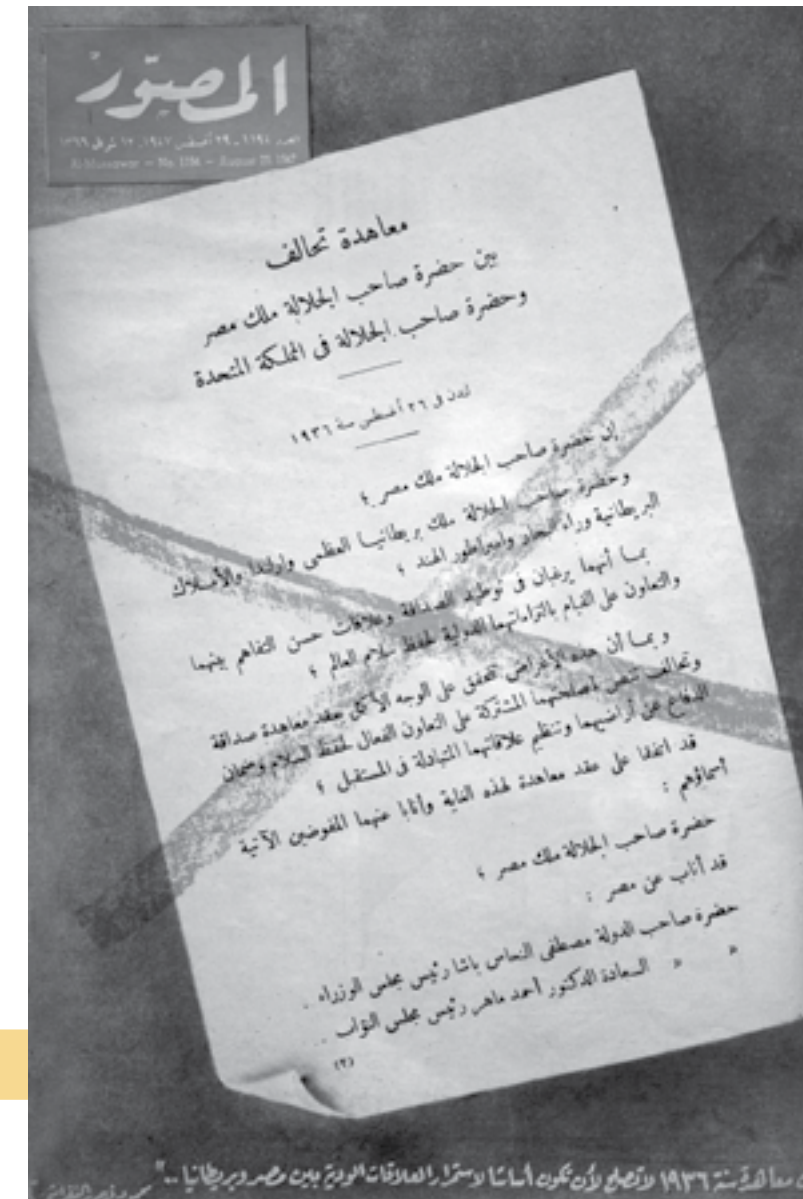 المصور
العدد ١١٩٤ - ٢٩ أغسطس ١٩٤٧ - ١٢ شوال ١٣٦٦
Al-Mussawar — No. 1194 — August 29, 1947
معاهدة تحالف
بين حضرة صاحب الجلالة ملك مصر
وحضرة صاحب الجلالة فى المملكة المتحدة
لندن فى ٢٦ أغسطس سنة ١٩٣٦
إن حضرة صاحب الجلالة ملك مصر ؛
وحضرة صاحب الجلالة ملك بريطانيا العظمى وارلندا والأملاك
البريطانية وراء البحار وامبراطور الهند ؛
بما أنهما يرغبان فى توطيد الصداقة وعلاقات حسن التفاهم بينهما
والتعاون على القيام بالتزاماتهما الدولية لحفظ سلام العالم ؛
وبما أن هذه الأغراض تتحقق على الوجه الأكمل بعقد معاهدة صداقة
وتحالف تنص لمصلحتهما المشتركة على التعاون الفعال لحفظ السلام وضمان
الدفاع عن أراضيهما وتنظيم علاقاتهما المتبادلة فى المستقبل ؛
قد اتفقا على عقد معاهدة لهذه الغاية وأنابا عنهما المفوضين الآتية
أسماؤهم :
حضرة صاحب الجلالة ملك مصر ؛
قد أناب عن مصر :
حضرة صاحب الدولة مصطفى النحاس باشا رئيس مجلس الوزراء .
» » السعادة الدكتور أحمد ماهر رئيس مجلس النواب .
(٢)
معاهدة سنة ١٩٣٦ لا تصلح لأن تكون أساسا لاستمرار العلاقات الودية بين مصر وبريطانيا .. "